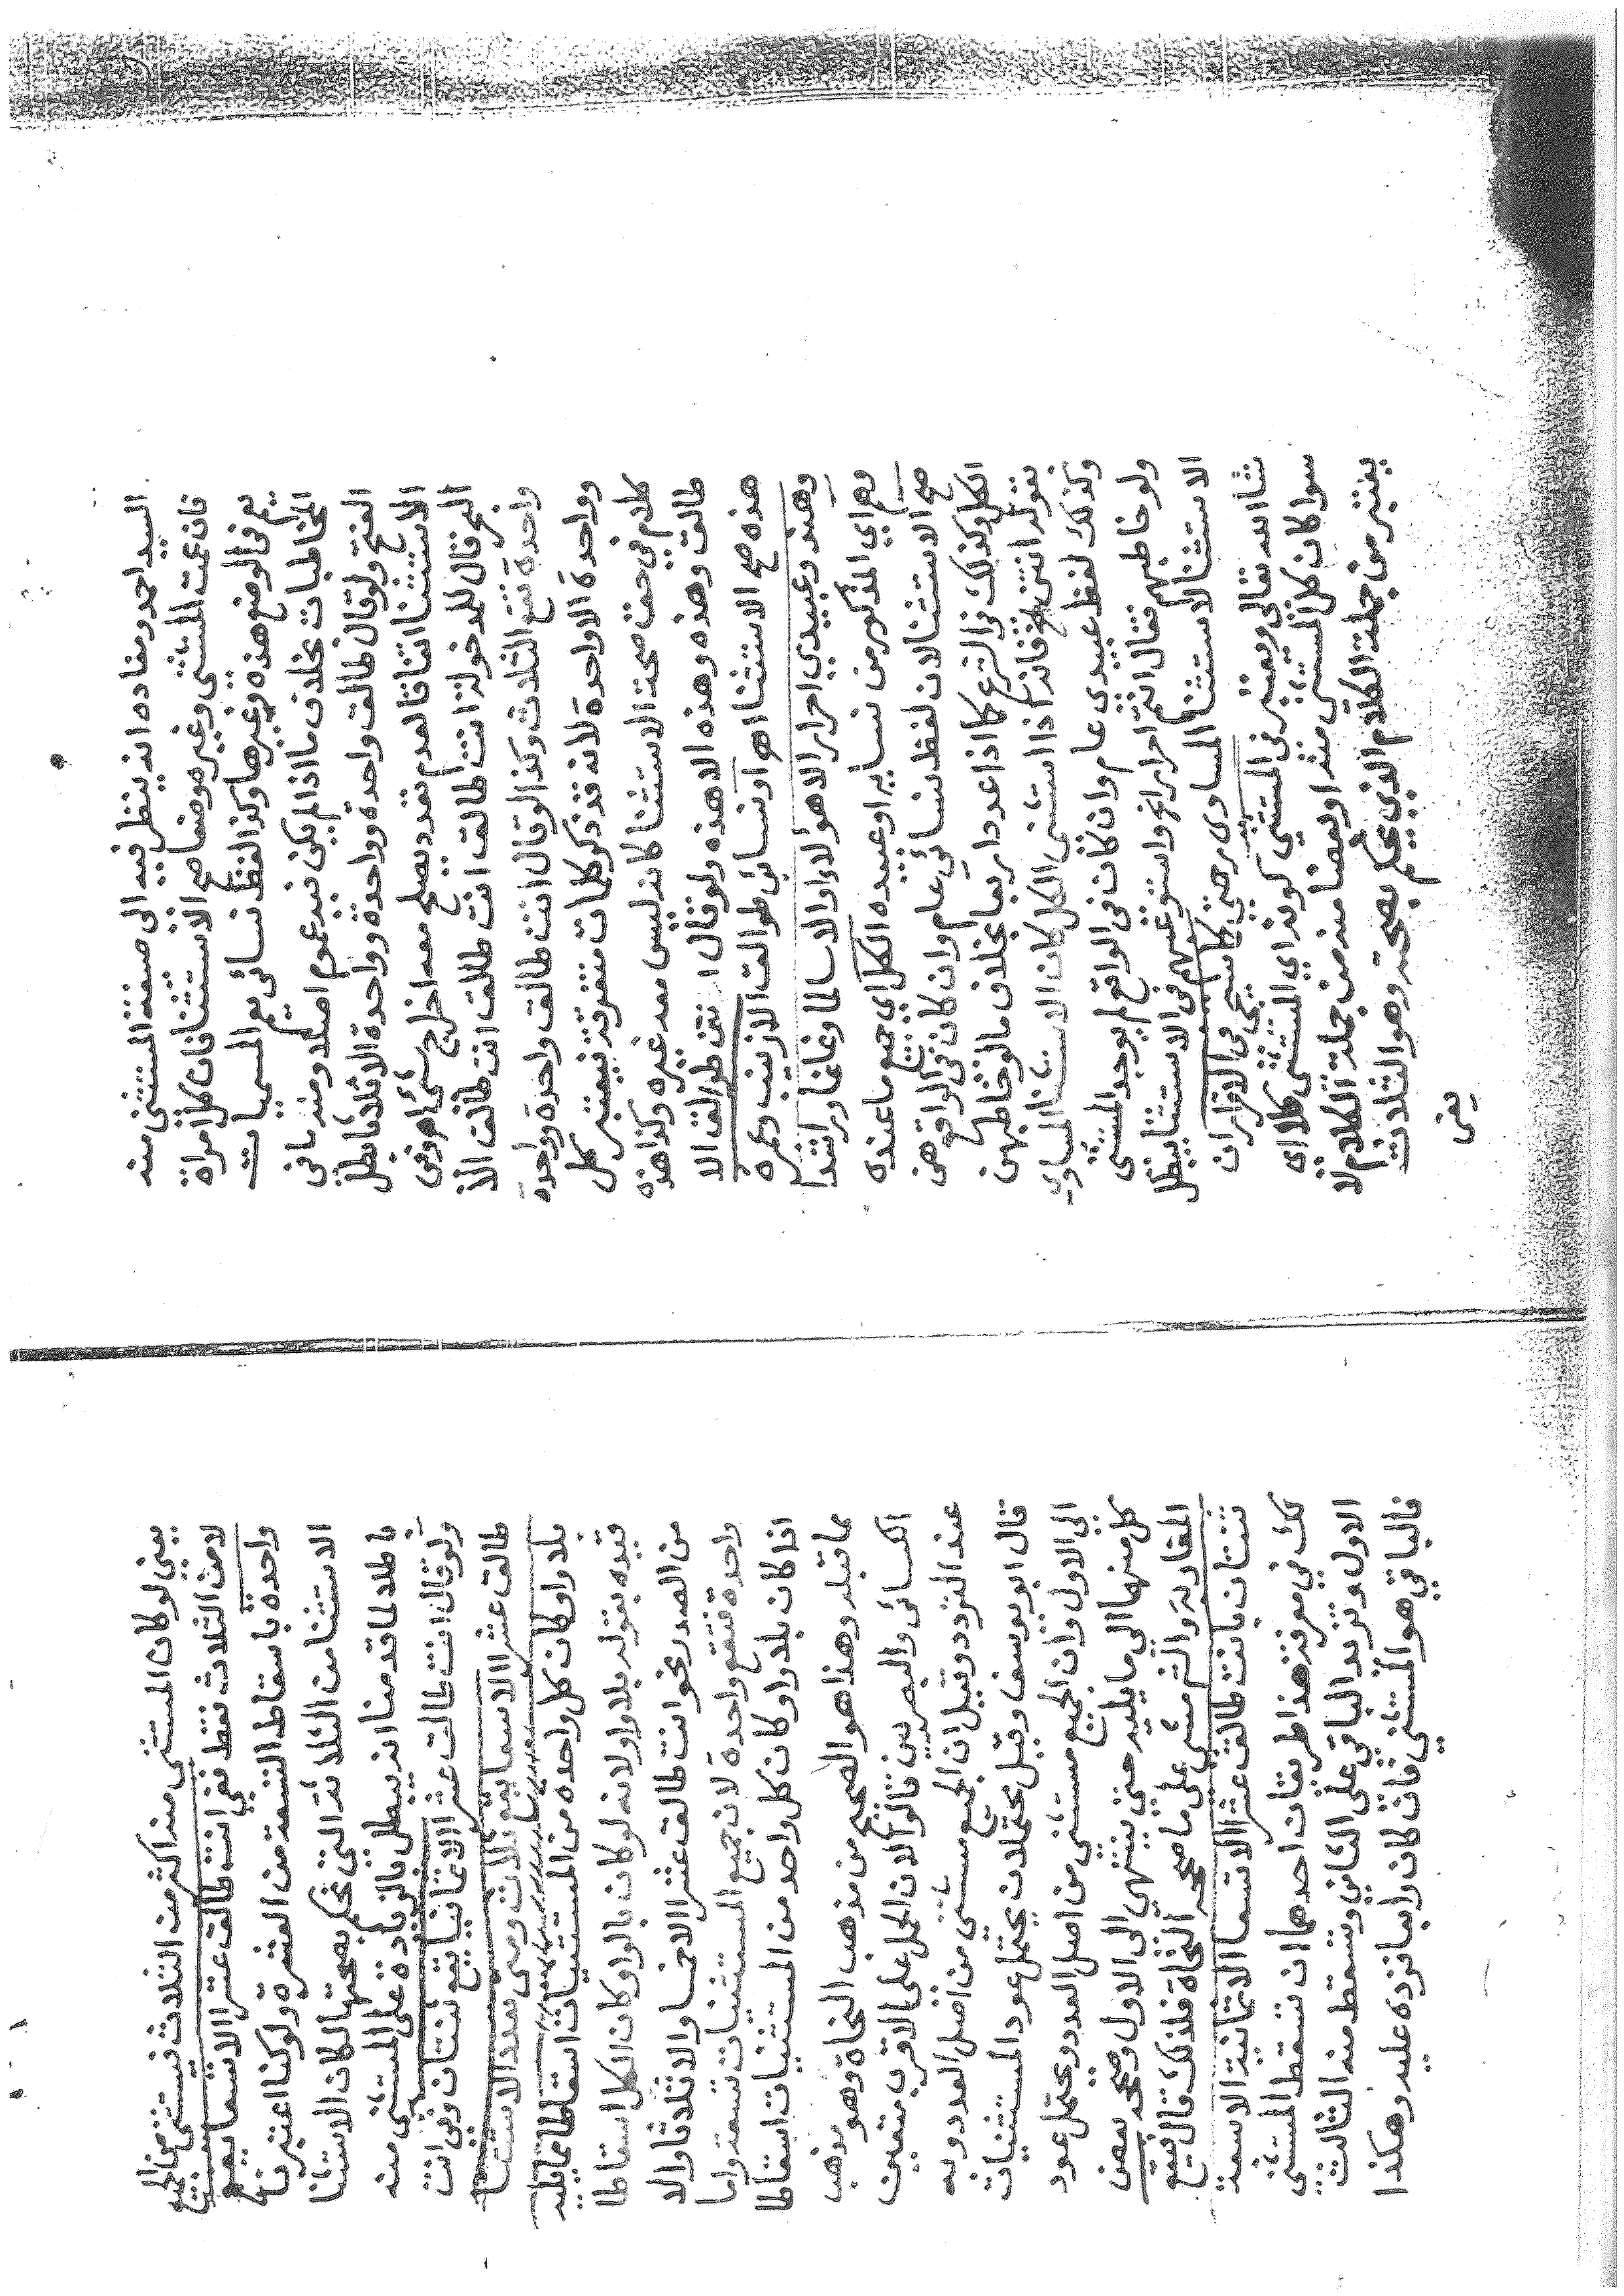 السيد احمد ومفاده انه ينظر فيه الى صفة المستثنى منه
فان عمت المستثنى وغيره وضعا صح الاستثنا فان كل امراة
يعم في الوضع هذه وغيرها وكذا لفظ نسائي يعم المسميات
المخاطبات بخلاف ما اذا لم يكن فيه عموم اصلا ومنه ما في
الفتح ولو قال طالق واحدة وواحدة وواحدة الا ثلاثا بطل
الاستثنا اتفاقا لعدم تعدد يصلح معه اخراج شئ اهـ وفي
البحر قال للمدخولة انت طالق انت طالق انت طالق الا
واحدة تقع الثلاث وكذا لو قال انت طالق واحدة وواحدة
وواحدة الا واحدة لانه قد ذكر كلمات متفرقة فيعتبر كل
كلام في حق صحة الاستثنا كانه ليس معه غيره وكذا هذه
طالق وهذه وهذه الا هذه ولو قال انتن طوالق الا
هذه صح الاستثنا اهـ او نسائي طوالق الا زينب وعمرة
وهند وعبيدي احرار الا هؤلاء او الا سالما وغانما وراشدا
وهم اي المذكور من نسايه او عبيده الكل اي جميع ما عنده
صح الاستثنا لان لفظ نسائي عام وان كان في الواقع هن
الكل وكذلك في الشرع كما اذا عددا ربعا بخلاف ما لو خاطبهن
بقوله انتن الخ فانه اذا استثنى الكل كان الاستثنا المساوي
وكذلك لفظ عبيدي عام وان كان في الواقع لم يوجد المستثنى
ولو خاطبهم فقال انتم احرار الخ واستوعبهم في الاستثنا بطل
الاستثنا لاستثنا المساوي كما سيجي في الاقرار ان
شا الله تعالى ويعتبر في المستثنى كونه اي المستثنى كلا اي
سوا كان كل المستثنى منه او بعضا منه من جملة الكلام لا
يعتبر من جملة الكلام الذي يحكم بصحته وهو الثلاث
يعني
يعني لو كان المستثنى منه اكثر من الثلاث فيستثنى من الجميع
لا من الثلاث فقط ففي انت طالق عشرا الا تسعا يقع
واحدة باسقاط التسعة من العشرة ولو كنا اعتبرنا
الاستثنا من الثلاثة التي نحكم بصحتها لكان الاستثنا
باطلا لما قدمنا انه يبطل بالزيادة على المستثنى منه
ولو قال انت طالق عشرا الا ثمانيا يقع ثنتان وفي انت
طالق عشرا الا سبعا يقع ثلاث ومتى تعدد الاستثنا
بلا واو كان كل واحدة من المستثنيات اسقاطا مما يليه
قيده بقوله بلا واو لانه لو كان بالواو كان الكل اسقاطا
من الصدر نحو انت طالق عشرا الا خمسا والا ثلاثا والا
واحدة فتقع واحدة لان جميع المستثنيات تسعة واما
اذا كان بلا واو كان كل واحد من المستثنيات اسقاطا
مما قبله وهذا هو الصحيح من مذهب النحاة وهو مذهب
الكسائي والبصريين قالوا لان الحمل على الاقرب متعين
عند التردد وقيل ان الجميع مستثنى من اصل العدد وبه
قال ابو يوسف وقيل محتملات يحتمل عود المستثنيات
الى الاول وان الجميع مستثنى من اصل العدد ويحتمل عود
كل منهما الى ما يليه حتى ينتهي الى الاول وصححه بعض
المغاربة والشم مشى على ما صححه النحاة فلذلك قال فيقع
ثنتان بانت طالق عشرا الا تسعا الا ثمانية الا سبعة
لك في معرفة هذا طريقان احدهما ان تسقط المستثنى
الاول وتزيد الباقي على الثاني وتسقط منه الثالث
فالباقي هو المستثنى فان كان رابعا فزده عليه وهكذا